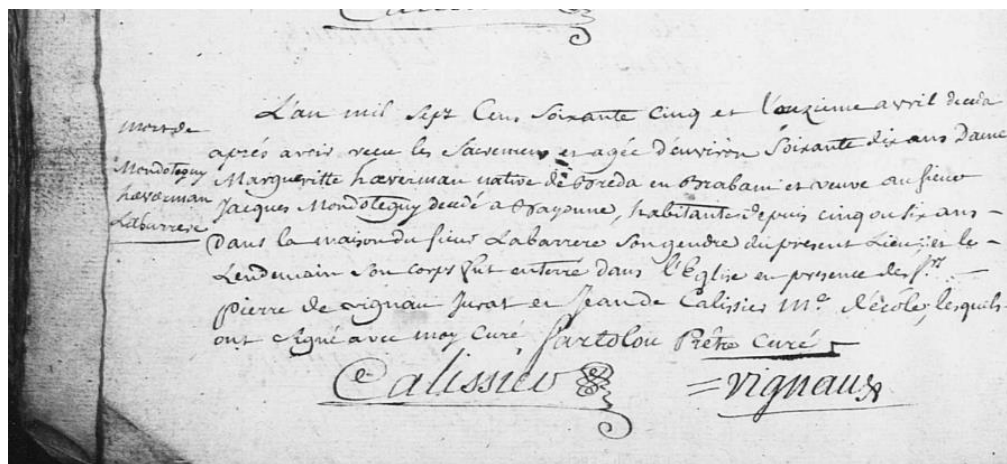 mort de
Mondoteguy
haverman
Labarrere
L'an mil sept Cens soixante Cinq et l'onzieme avril deceda
aprés avoir receu les Sacremens et agée d'environ Soixante dix ans Dame
Margueritte haverman native de Breda en Brabant et veuve au sieur
Jacques Mondoteguy decedé a Bayonne, habitante depuis cinq ou six ans
Dans la maison du sieur Labarrere son gendre du present Lieu; et le
Lendemain son corps fut enterré dans l'Eglise en presence de srs
pierre de vignau Jurat et Jean de Calissier me. d'école, lesquels
ont signé avec moy Curé Partolou Prêtre Curé
Calissier =vignaux